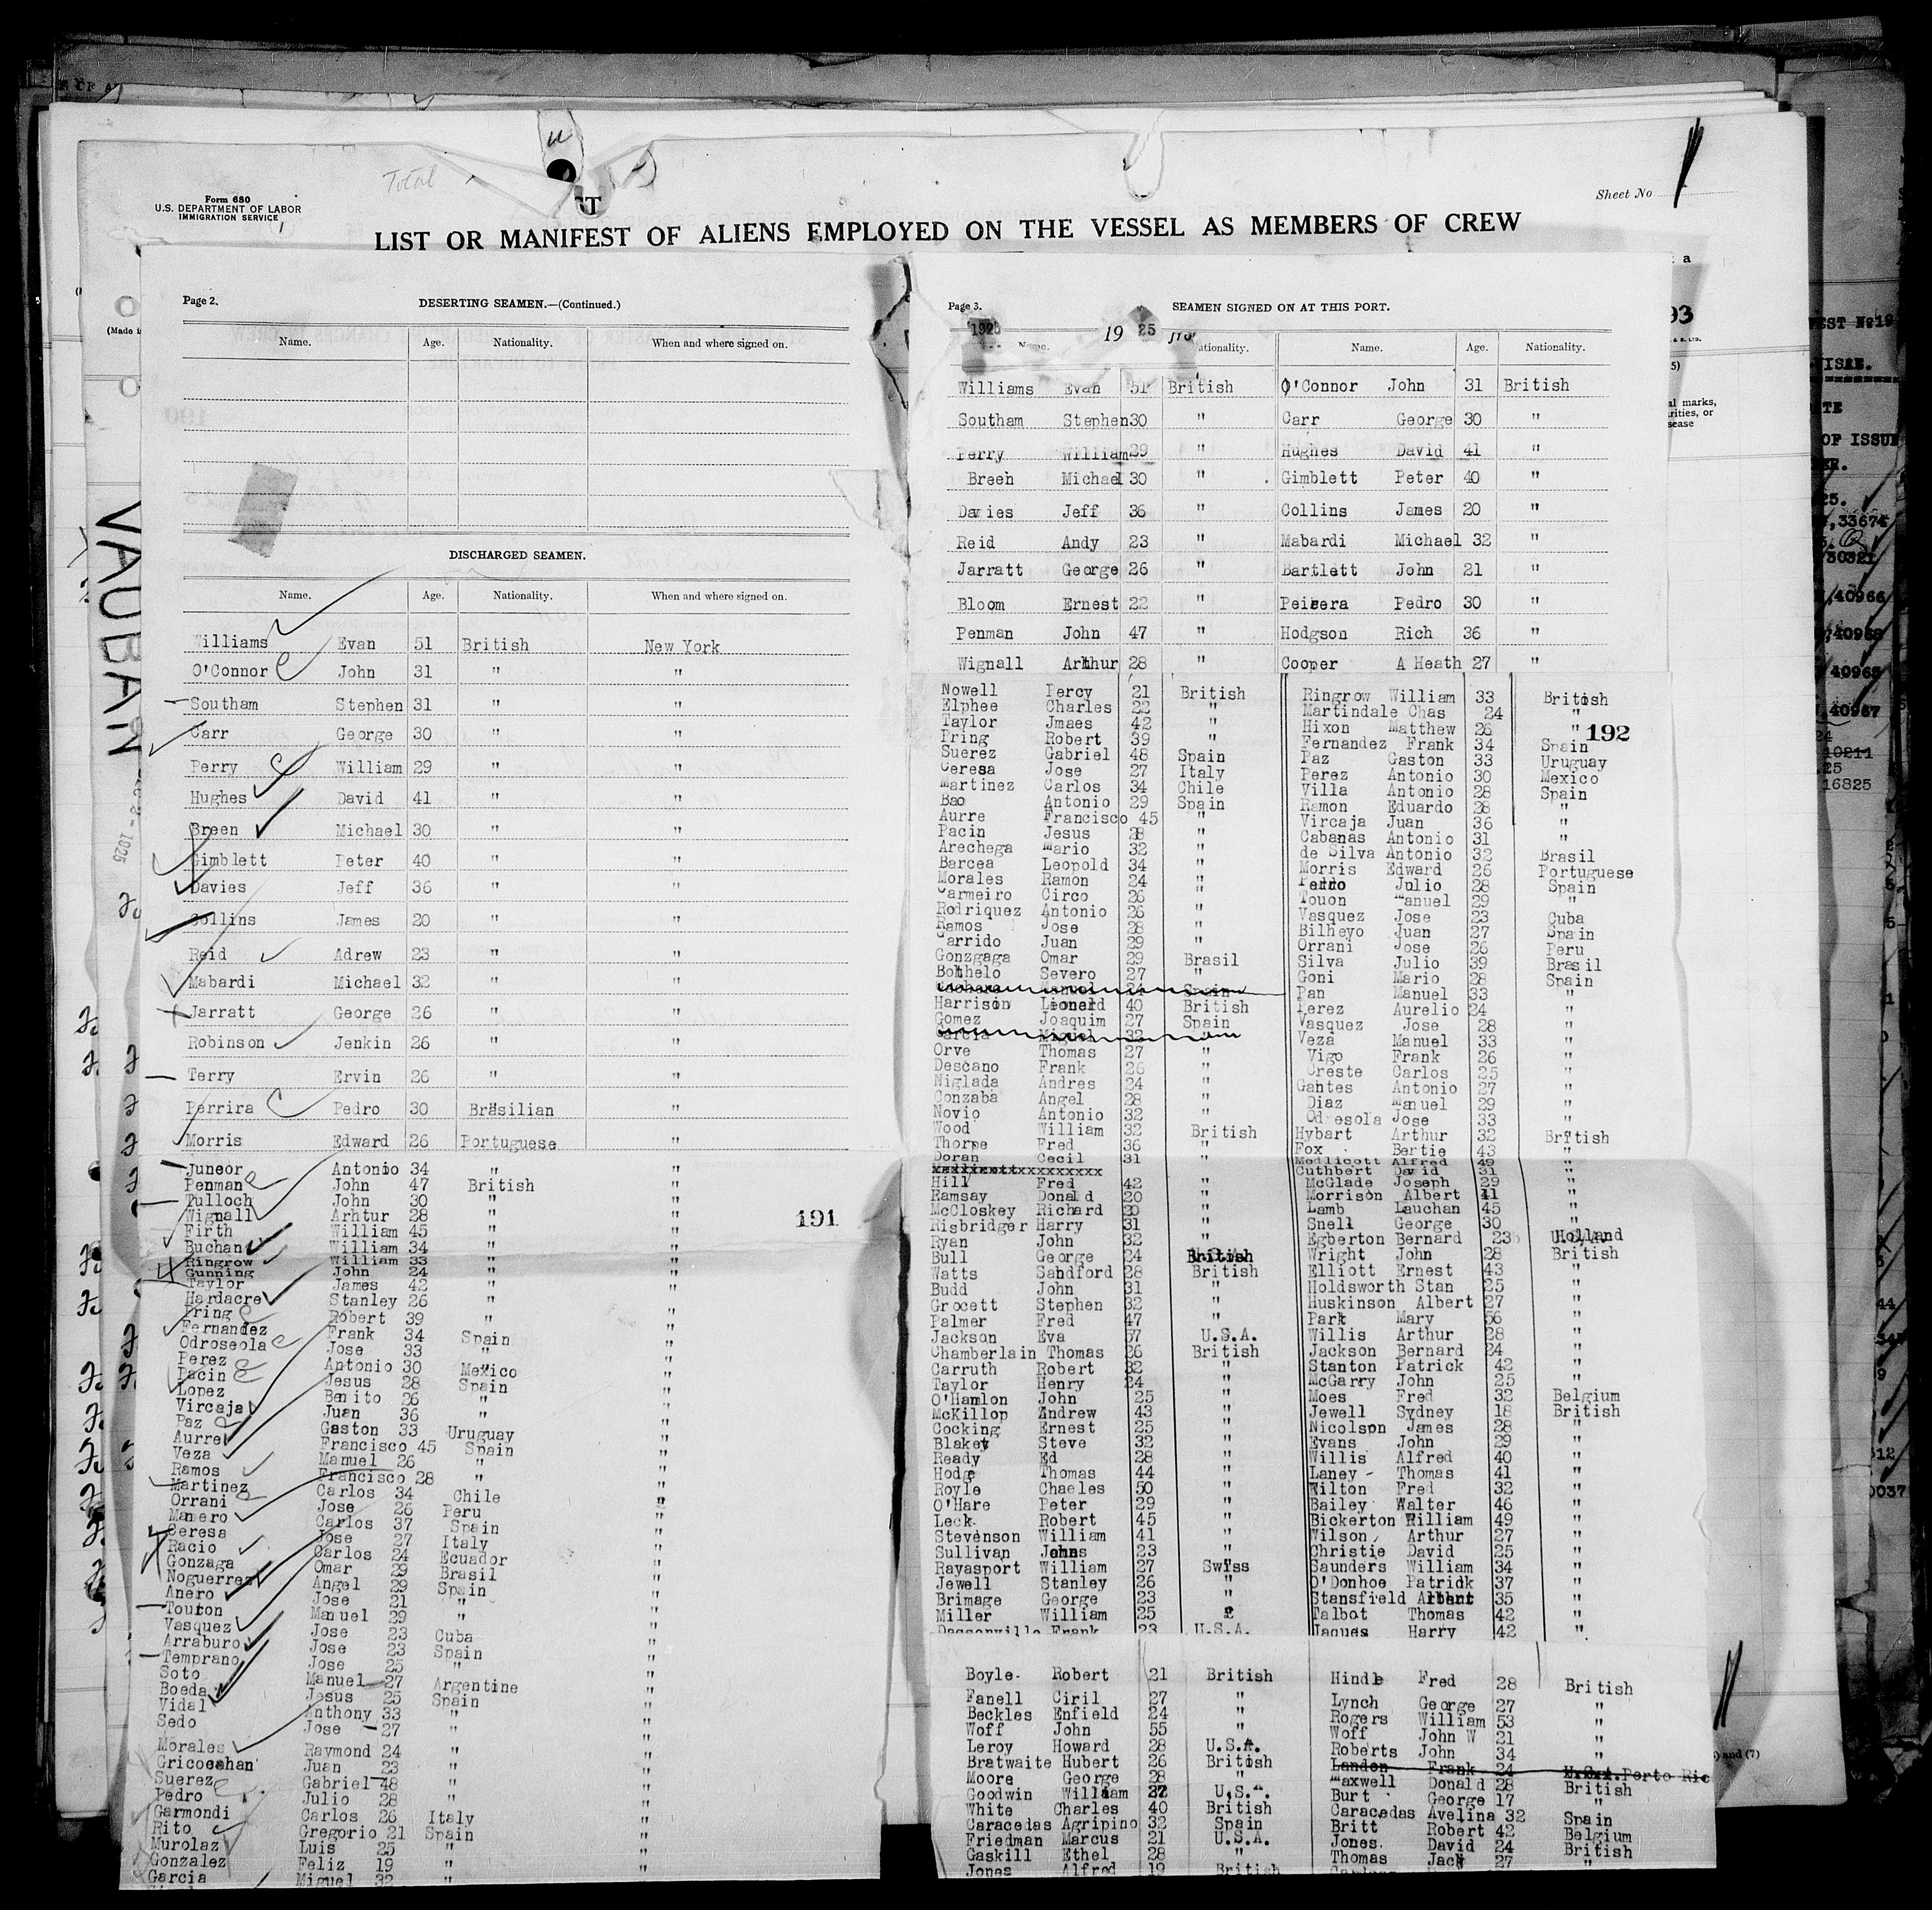 Total
Form 680
U.S. DEPARTMENT OF LABOR
IMMIGRATION SERVICE
Sheet No
LIST OR MANIFEST OF ALIENS EMPLOYED ON THE VESSEL AS MEMBERS OF CREW
VAUBAN
Page 2.
DESERTING SEAMEN.—(Continued.)
Name. Age. Nationality. When and where signed on.
DISCHARGED SEAMEN.
Name. Age. Nationality. When and where signed on.
Williams Evan 51 British New York
O'Connor John 31 " "
Southam Stephen 31 " "
Carr George 30 " "
Perry William 29 " "
Hughes David 41 " "
Breen Michael 30 " "
Gimblett Peter 40 " "
Davies Jeff 36 " "
Collins James 20 " "
Reid Adrew 23 " "
Mabardi Michael 32 " "
Jarratt George 26 " "
Robinson Jenkin 26 " "
Terry Ervin 26 " "
Perrira Pedro 30 Brasilian "
Morris Edward 26 Portuguese "
Juneor Antonio 34 " "
Penman John 47 British "
Tulloch John 30 " "
Wignall Arhtur 28 " "
Firth William 45 " "
Buchan William 34 " "
Ringrow William 33 " "
Gunning John 24 " "
Taylor James 42 " "
Hardacre Stanley 26 " "
Pring Robert 39 " "
Fernandez Frank 34 Spain "
Odroseola Jose 33 " "
Perez Antonio 30 Mexico "
Pacin Jesus 28 Spain "
Lopez Benito 26 " "
Vircaja Juan 36 " "
Paz Gaston 33 Uruguay "
Aurre Francisco 45 Spain "
Veza Manuel 26 " "
Ramos Francisco 28 " "
Martinez Carlos 34 Chile "
Orrani Jose 26 Peru "
Manero Carlos 37 Spain "
Ceresa Jose 27 Italy "
Racio Carlos 24 Ecuador "
Gonzaga Omar 29 Brasil "
Noguerrez Angel 29 Spain "
Anero Jose 21 " "
Touron Manuel 29 " "
Vasquez Jose 23 Cuba "
Arraburo Jose 23 Spain "
Temprano Jose 25 " "
Soto Manuel 27 Argentine "
Boeda Jesus 25 Spain "
Vidal Anthony 33 " "
Sedo Jose 27 " "
Morales Raymond 24 " "
Juan 23 " "
Suerez Gabriel 48 " "
Pedro Julio 28 " "
Garmondi Carlos 26 Italy "
Rito Gregorio 21 Spain "
Murolaz Luis 25 " "
Gonzalez Feliz 19 " "
Garcia Miguel 32 " "
191
Page 3.
SEAMEN SIGNED ON AT THIS PORT.
1925 19 25
Name. Nationality. Name. Age. Nationality.
Williams Evan 51 British O'Connor John 31 British
Southam Stephen 30 " Carr George 30 "
Perry William 29 " Hughes David 41 "
Breen Michael 30 " Gimblett Peter 40 "
Davies Jeff 36 " Collins James 20 "
Reid Andy 23 " Mabardi Michael 32 "
Jarratt George 26 " Bartlett John 21 "
Bloom Ernest 22 " Peirera Pedro 30 "
Penman John 47 " Hodgson Rich 36 "
Wignall Arthur 28 " Cooper A Heath 27 "
Nowell Percy 21 British Ringrow William 33 British
Elphee Charles 22 " Martindale Chas 24 "
Taylor Jmaes 42 " Hixon Matthew 26 "
192
Pring Robert 39 " Fernandez Frank 34 Spain
Suerez Gabriel 48 Spain Paz Gaston 33 Uruguay
Ceresa Jose 27 Italy Perez Antonio 30 Mexico
Martinez Carlos 34 Chile Villa Antonio 28 Spain
Bao Antonio 29 Spain Ramon Eduardo 28 "
Aurre Francisco 45 " Vircaja Juan 36 "
Pacin Jesus 28 " Cabanas Antonio 31 "
Arechega Mario 32 " de Silva Antonio 32 Brasil
Barcea Leopold 34 " Morris Edward 26 Portuguese
Morales Ramon 24 " Julio 28 Spain
Carmeiro Circo 26 " Touon Manuel 29 "
Rodriquez Antonio 26 " Vasquez Jose 23 Cuba
Ramos Jose 28 " Bilheyo Juan 27 Spain
Garrido Juan 29 " Orrani Jose 26 Peru
Gonzgaga Omar 29 Brasil Silva Julio 39 Brasil
Bothelo Severo 27 " Goni Mario 28 Spain
Pan Manuel 33 "
Harrison Lionard 40 British Perez Aurelio 24 "
Gomez Joaquim 27 Spain Vasquez Jose 28 "
Garcia Miguel 32 " Veza Manuel 33 "
Orve Thomas 27 " Vigo Frank 26 "
Descano Frank 26 " Creste Carlos 25 "
Niglada Andres 24 " Gahtes Antonio 27 "
Conzaba Angel 28 " Diaz Manuel 29 "
Novio Antonio 32 " Odresola Jose 33 "
Wood William 32 British Hybart Arthur 32 British
Thorpe Fred 36 " Fox Bertie 43 "
Doran Cecil 31 " Medlicott Alfred 49 "
Cuthbert David 31 "
Hill Fred 42 " McGlade Joseph 29 "
Ramsay Donald 20 " Morrison Albert 41 "
McCloskey Richard 30 " Lamb Lauchan 45 "
Risbridger Harry 31 " Snell George 30 "
Ryan John 32 " Egberton Bernard 23 Holland
Bull George 24 British Wright John 28 British
Watts Sandford 28 British Elliott Ernest 43 "
Budd John 31 " Holdsworth Stan 25 "
Grocett Stephen 32 " Huskinson Albert 27 "
Palmer Fred 47 " Park Mary 56 "
Jackson Eva 57 U.S.A. Willis Arthur 28 "
Chamberlain Thomas 26 British Jackson Bernard 24 "
Carruth Robert 32 " Stanton Patrick 42 "
Taylor Henry 24 " McGarry John 25 "
O'Hanlon John 25 " Moes Fred 32 Belgium
McKillop Andrew 43 " Jewell Sydney 18 British
Cocking Ernest 25 " Nicolson James 28 "
Blakey Steve 32 " Evans John 29 "
Ready Ed 28 " Willis Alfred 40 "
Hodge Thomas 44 " Laney Thomas 41 "
Royle Chaeles 50 " Wilton Fred 32 "
O'Hare Peter 29 " Bailey Walter 46 "
Leck Robert 45 " Bickerton William 49 "
Stevenson William 41 " Wilson Arthur 27 "
Sullivan 23 " Christie David 25 "
Rayasport William 27 Swiss Saunders William 34 "
Jewell Stanley 26 " O'Donhoe Patrick 37 "
Brimage George 23 " Stansfield 35 "
Miller William 25 Talbot Thomas 42 "
Dassonville Frank 23 U.S.A. Jaques Harry 42 "
Boyle Robert 21 British Hindle Fred 28 British
Fanell Ciril 27 " Lynch George 27 "
Beckles Enfield 24 " Rogers William 53 "
Woff John 55 " Woff John W 21 "
Leroy Howard 28 U.S.A. Roberts John 34 "
Bratwaite Hubert 26 British Landon Frank 24 Porto Ric
Moore George 28 " Maxwell Donald 28 British
Goodwin William U.S.A. Burt George 17 "
White Charles 40 British Caracedas Avelina 32 Spain
Caracedas Agripino 32 Spain Britt Robert 42 Belgium
Friedman Marcus 21 U.S.A. Jones David 24 British
Gaskill Ethel 28 " Thomas Jack 27 "
Jones Alfred 19 British
93
al marks,
rities, or
sease
OF ISSUE
33674
30321
40966
40968
40965
40967
10211
16825
) and (7)